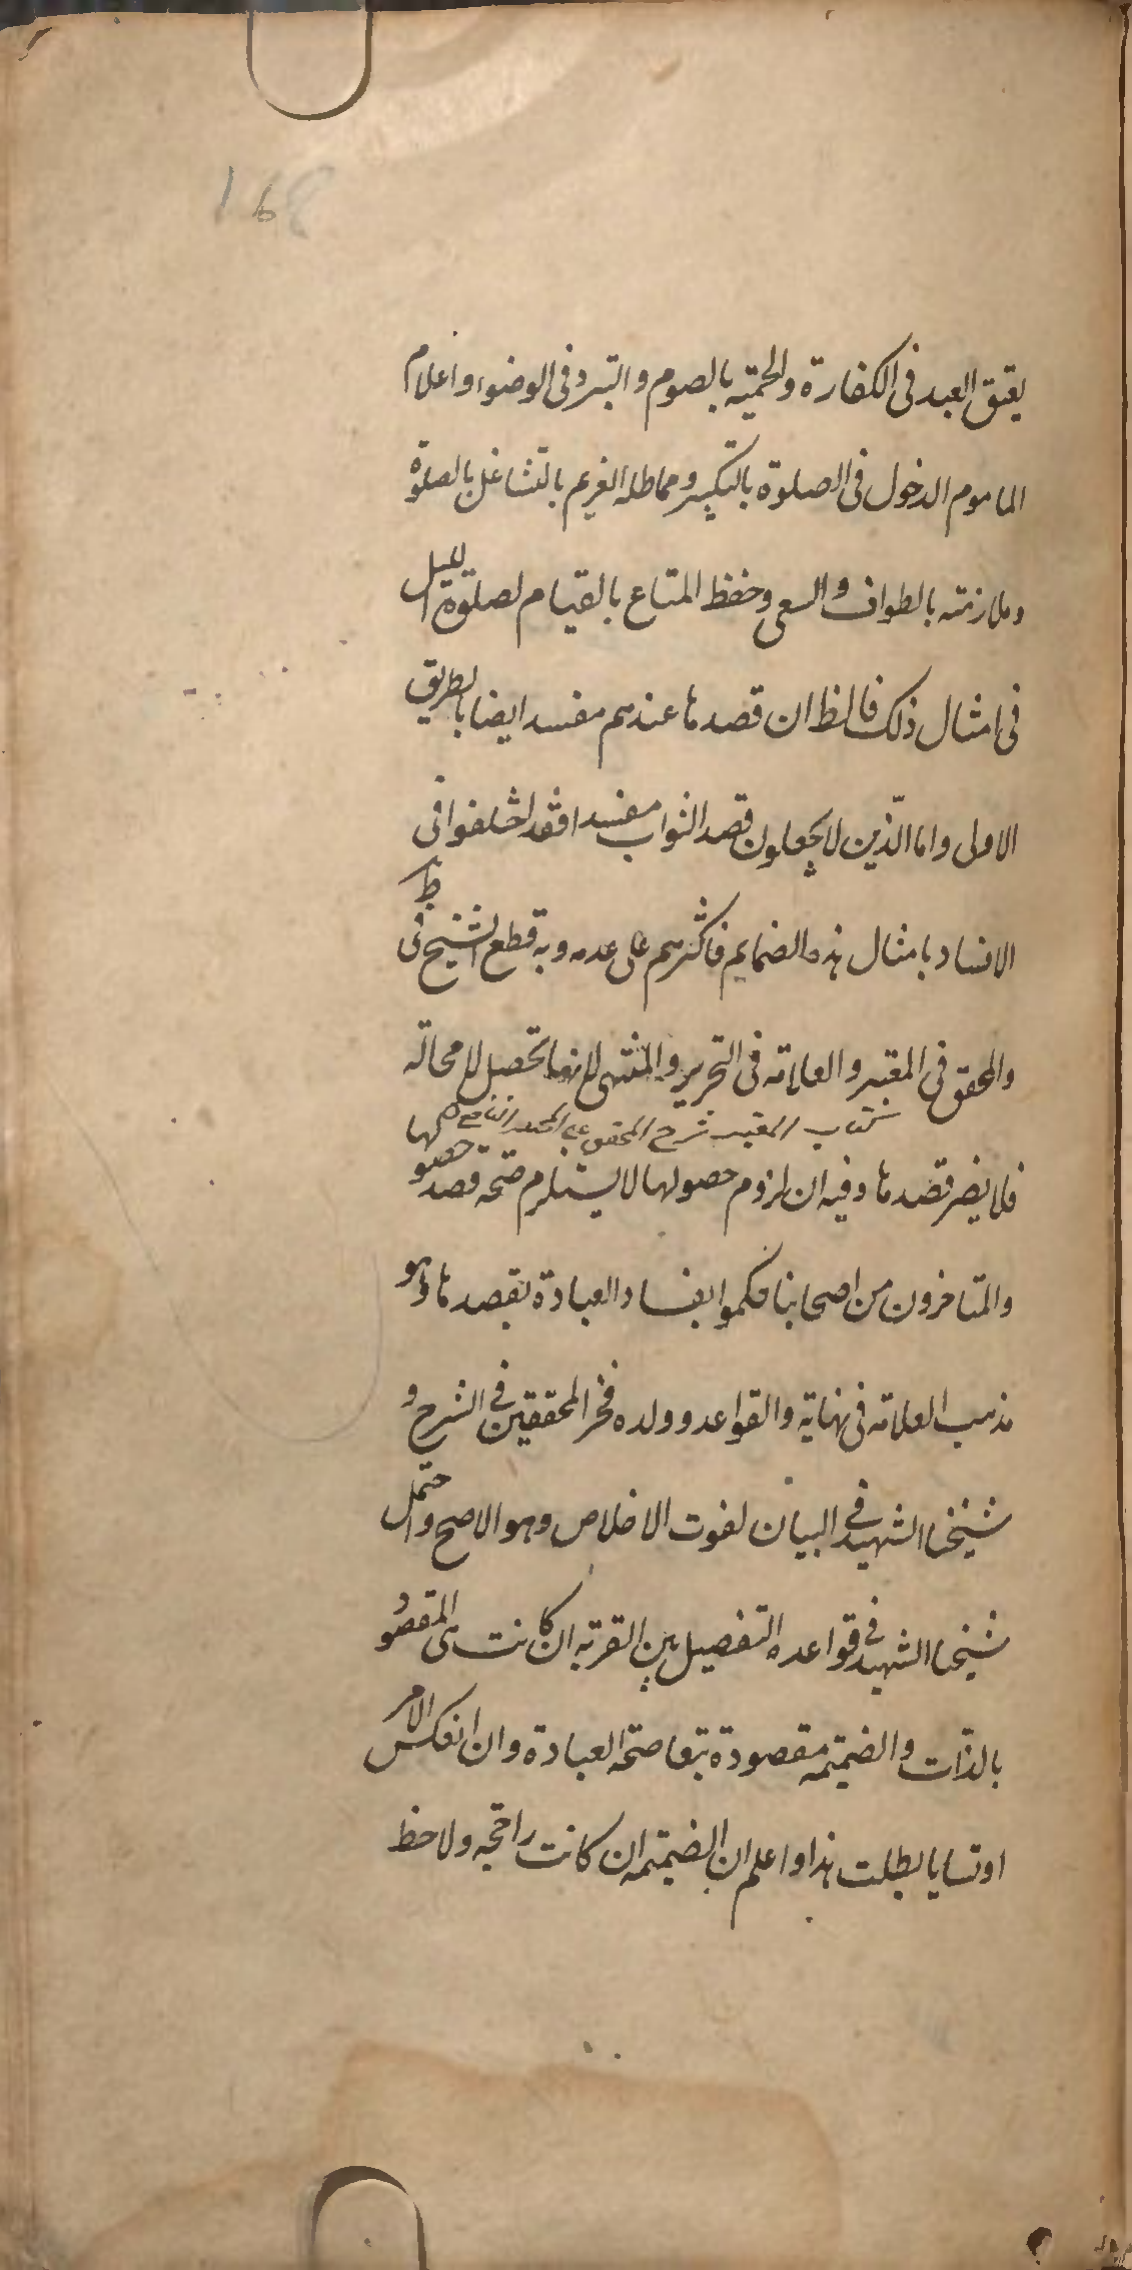 168
يعتق العبد فى الكفارة والحمية بالصوم والتبرد فى الوضوء واعلام
الماموم الدخول فى الصلوة بالتكبير ومماطلة الغريم بالتشاغل بالصلوة
وملازمته بالطواف والسعى وحفظ المتاع بالقيام لصلوة الليل
فى امثال ذلك فالظ ان قصدها عندهم مفسد ايضا بالطريق
الاولى واما الذين لا يجعلون قصد الثواب مفسدا فقد اختلفوا فى
الافساد بامثال هذه الضمايم فاكثرهم على عدمه وبه قطع الشيخ فى ط
والمحقق فى المعتبر والعلامة فى التحرير والمنتهى لانها تحصل لا محالة
كتاب المعتبر شرح المحقق على المختصر النافع
فلا يضر قصدها وفيه ان لزوم حصولها لا يستلزم صحة قصد حصولها
والمتاخرون من اصحابنا حكموا بفساد العبادة بقصدها وهو
مذهب العلامة فى نهاية والقواعد وولده فخر المحققين فى الشرح و
شيخنا الشهيد فى البيان لفوت الاخلاص وهو الاصح واحتمل
شيخنا الشهيد فى قواعده التفصيل بين القربة ان كانت هى المقصود
بالذات والضميمة مقصودة تبعا صحة العبادة وان انعكس الامر
او تساويا بطلت هذا واعلم ان الضميمة ان كانت راجحة ولاحظ